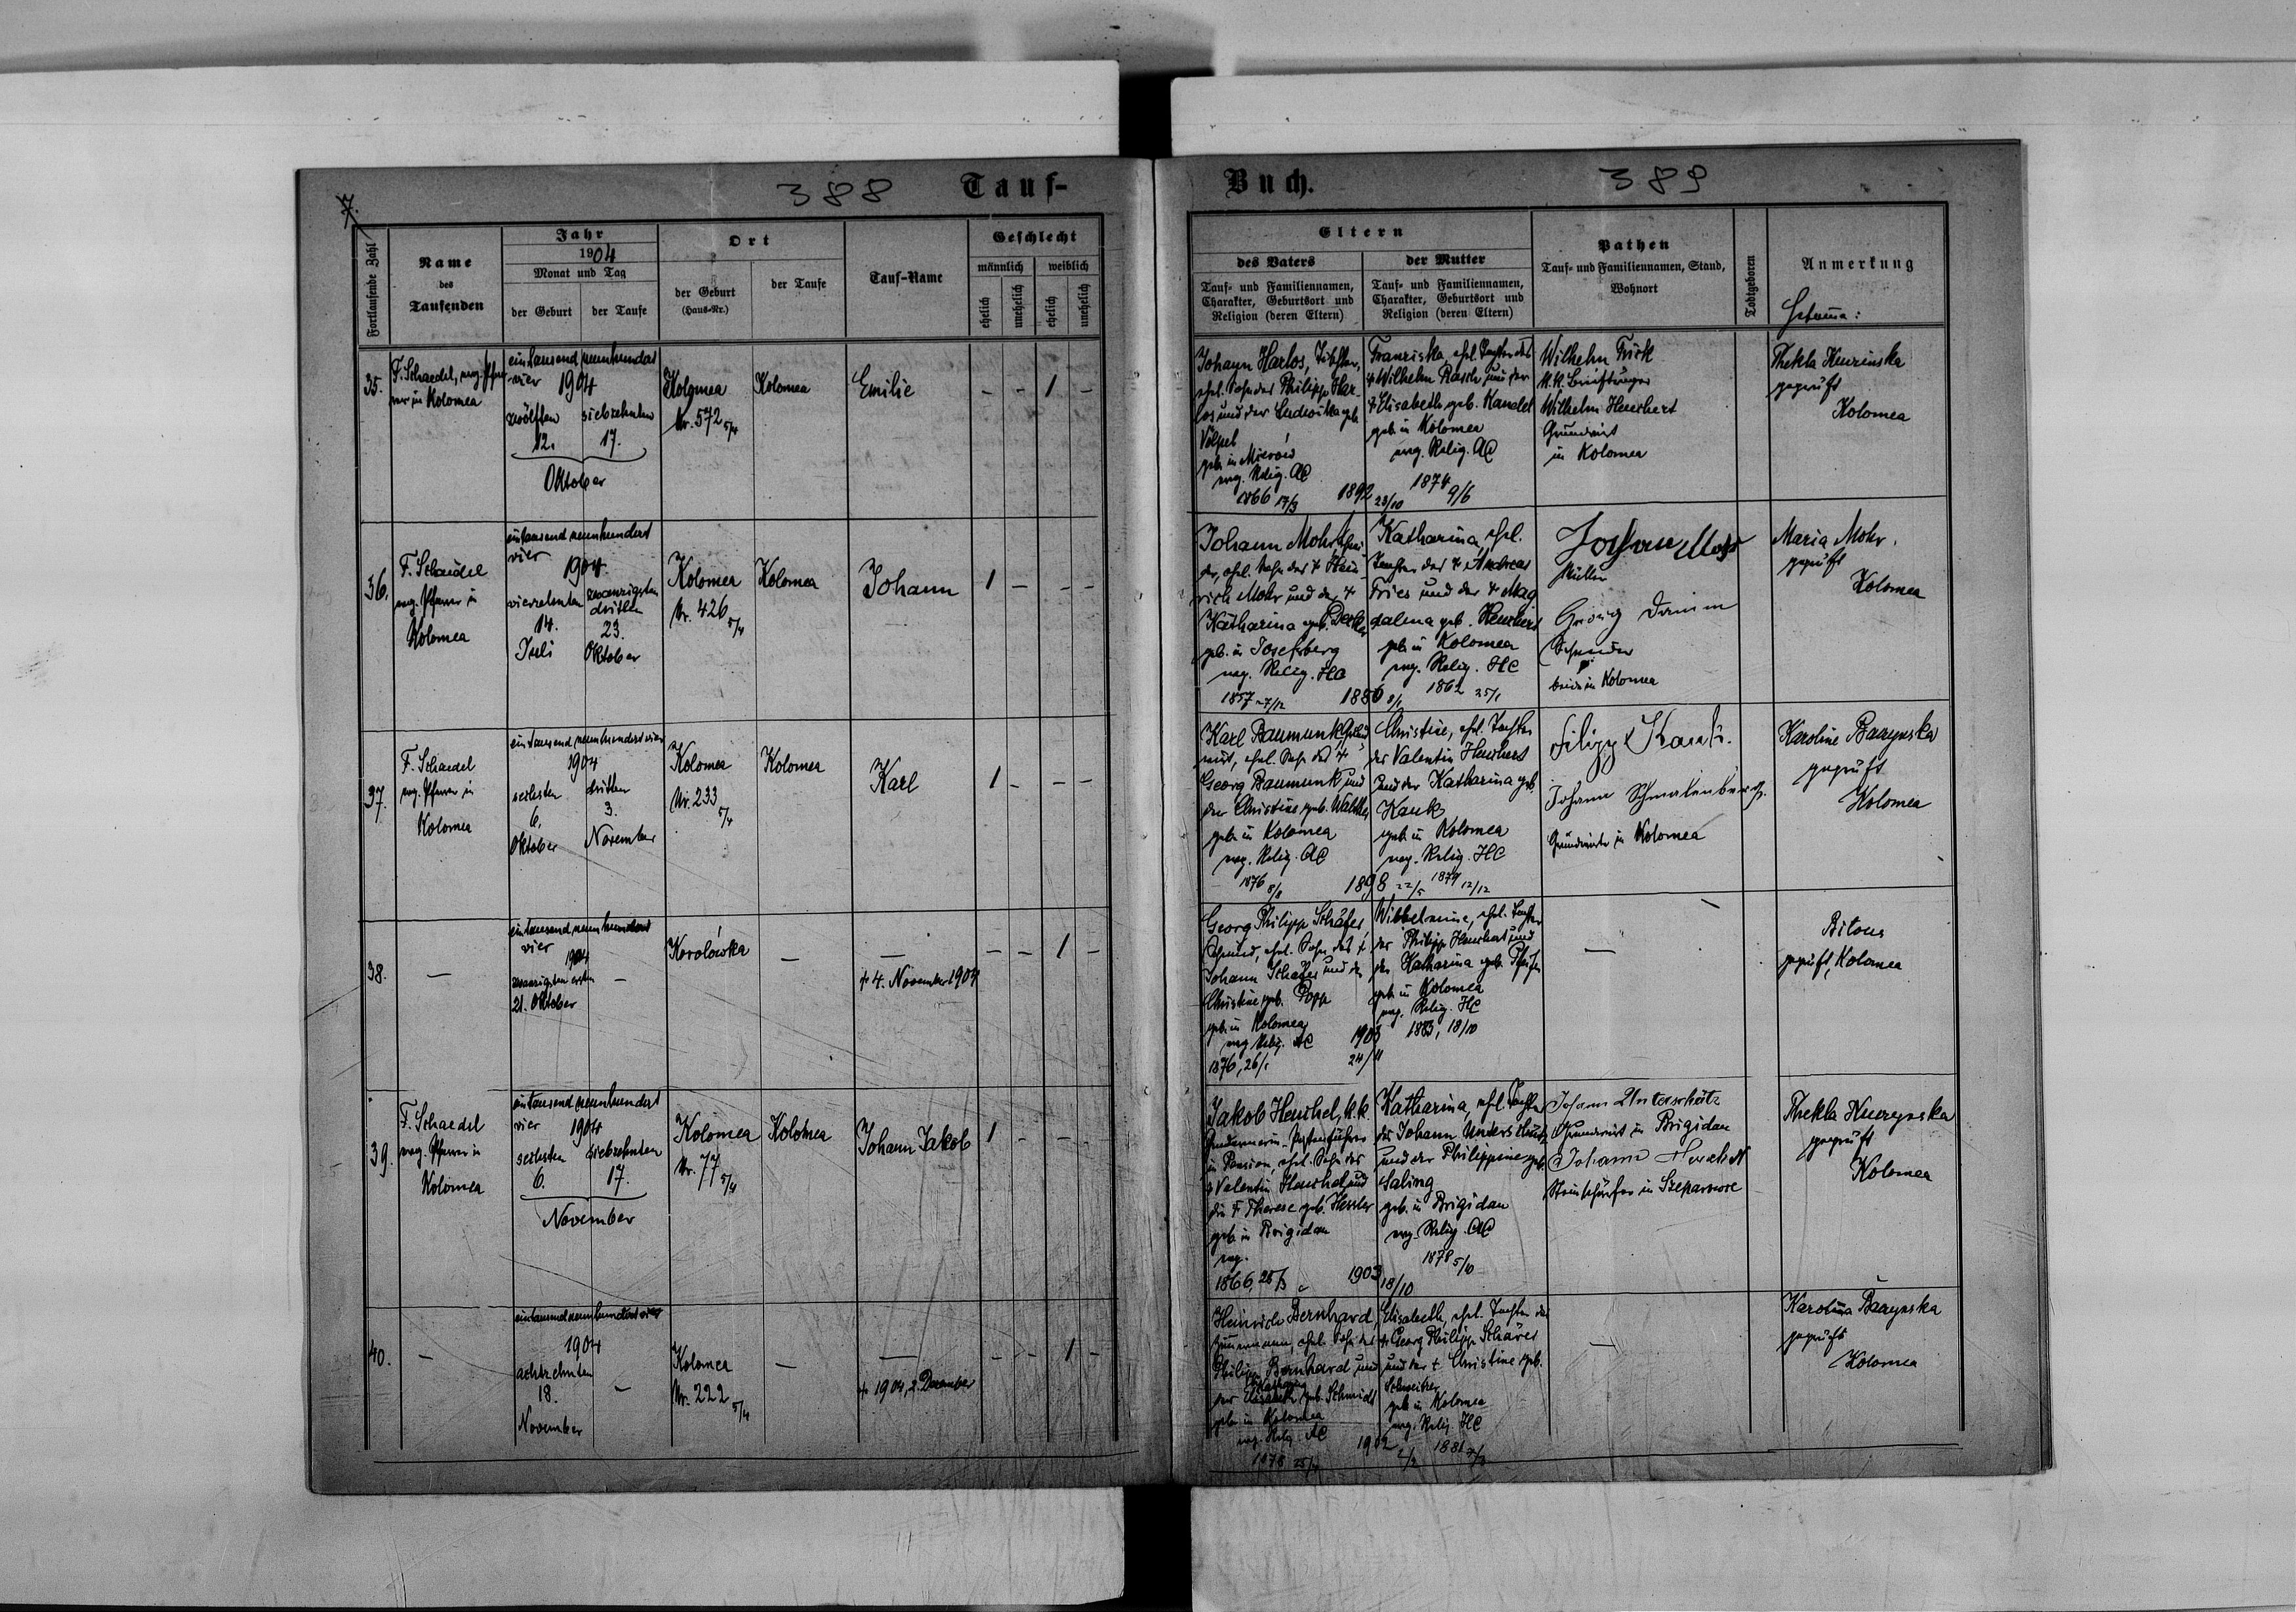 388
Tauf-
Fortlaufende Zahl
Name
des
Taufenden
Jahr
1904
Monat und Tag
der Geburt
der Taufe
Ort
der Geburt
(Haus-Nr.)
der Taufe
Tauf-Name
Geschlecht
männlich
weiblich
ehelich
unehelich
ehelich
unehelich
35.
F. Schaedel, evg. Pfar-
rer in Kolomea
eintausend neunhundert
vier 1904
zwölften siebzehnten
12. 17.
Oktober
Kolomea
Nr. 572 5/4
Kolomea
Emilie
- - 1 -
36.
F. Schaedel
evg. Pfarrer in
Kolomea
eintausend neunhundert
vier
1904
vierzehnten
14.
Juli
zwanzigsten
dritten
23.
Oktober
Kolomea
Nr. 426 5/4
Kolomea
Johann
1 - - -
37.
F. Schaedel
evg. Pfarrer in
Kolomea
eintausend neunhundert vier
1904
sechsten dritten
6. 3.
Oktober November
Kolomea
Nr. 233 5/4
Kolomea
Karl
1 - - -
38.
-
eintausend neunhundert
vier
1904
zwanzigsten ersten
21. Oktober
-
Korolówka
-
-
† 4. November 1904
- - 1 -
39.
F. Schaedel
evg. Pfarrer in
Kolomea
eintausend neunhundert
vier 1904
sechsten siebzehnten
6. 17.
November
Kolomea
Nr. 77 5/4
Kolomea
Johann Jakob
1 - - -
40.
-
eintausend neunhundert vier
1904
achtzehnten
18. -
November
Kolomea
Nr. 222 5/4
-
-
† 1904, 2. Dezember
- - 1 -
Buch.
389
Eltern
des Vaters
Tauf- und Familiennamen,
Charakter, Geburtsort und
Religion (deren Eltern)
der Mutter
Tauf- und Familiennamen,
Charakter, Geburtsort und
Religion (deren Eltern)
Pathen
Tauf- und Familiennamen, Stand,
Wohnort
Todtgeboren
Anmerkung
Hebamme:
Johann Harlos, Tischler,
ehel. Sohn des Philipp Har-
los und der Ludowika geb.
Völpel
geb. in Mierów
evg. Relig. AC
1866 17/3
1892 23/10
Franziska, ehel. Tochter des
† Wilhelm Rasch und der
† Elisabeth geb. Kandel
geb. in Kolomea
evg. Relig. AC
1874 9/6
Wilhelm Frick
K.K. Briefträger
Wilhelm Heuchert
Grundwirt
in Kolomea
Thekla
geprüft
Kolomea
Johann Mohr,
ehel. Sohn des † Hein-
rich Mohr und der †
Katharina geb.
geb. in Josefsberg
evg. Relig. HC
1857 27/12
1886 8/1
Katharina, ehel.
Tochter des † Andreas
Fries und der † Mag
dalena geb. Heuchert
geb. in Kolomea
evg. Relig. HC
1862 25/1
Johann Mohr
Müller
Georg Damm
beide in Kolomea
Maria Mohr,
geprüft
Kolomea
Karl Baumunk, Grund
wirt, ehel. Sohn des †
Georg Baumunk und
der Christine geb. Walther
geb. in Kolomea
evg. Relig. AC
1876 8/8
1898 22/5
Christine, ehel. Tochter
des Valentin Heuchert
und der Katharina geb.
Kauk
geb. in Kolomea
evg. Relig. HC
1879 12/12
Filipp Kauk.
Johann Schmalenberg.
Grundwirte in Kolomea
Karoline Baczynska
geprüft
Kolomea
Georg Philipp Schäfer,
Schmied, ehel. Sohn des †
Johann Schäfer und der
Christine geb. Popp
geb. in Kolomea
evg. Relig. AC
1876, 26/1
1903
24/11
Wilhelmine, ehel. Tochter
des Philipp Heuchert und
der Katharina geb. Pfeifer
geb. in Kolomea
evg. Relig. HC
1883, 18/10
-
Bitous
geprüft, Kolomea
Jakob Heuchel, k.k.
Gendarmerie-Postenführer
in Pension, ehel. Sohn des
† Valentin Heuchel und
der † Therese geb. Hessler
geb. in Brigidau
evg.
1866, 28/3
1903 18/10
Katharina, ehel. Tochter
des Johann Unterschütz
und der Philippine geb.
Saling
geb. in Brigidau
evg. Relig. AC
1878 5/10
Johann Unterschütz
Grundwirt in Brigidau
Johann
in Szeparowce
Thekla
geprüft
Kolomea
Heinrich Bernhard,
Zimmermann, ehel. Sohn des
Philipp Bernhard und
Katharina
der Elisabeth geb. Schmidt
geb. in Kolomea
evg. Relig. AC
1878
1902 2/2
Elisabeth, ehel. Tochter des
† Georg Philipp Schärer
und der † Christine geb.
Schweitzer
geb. in Kolomea
evg. Relig. HC
1881
-
Karolina Baczynska
geprüft
Kolomea